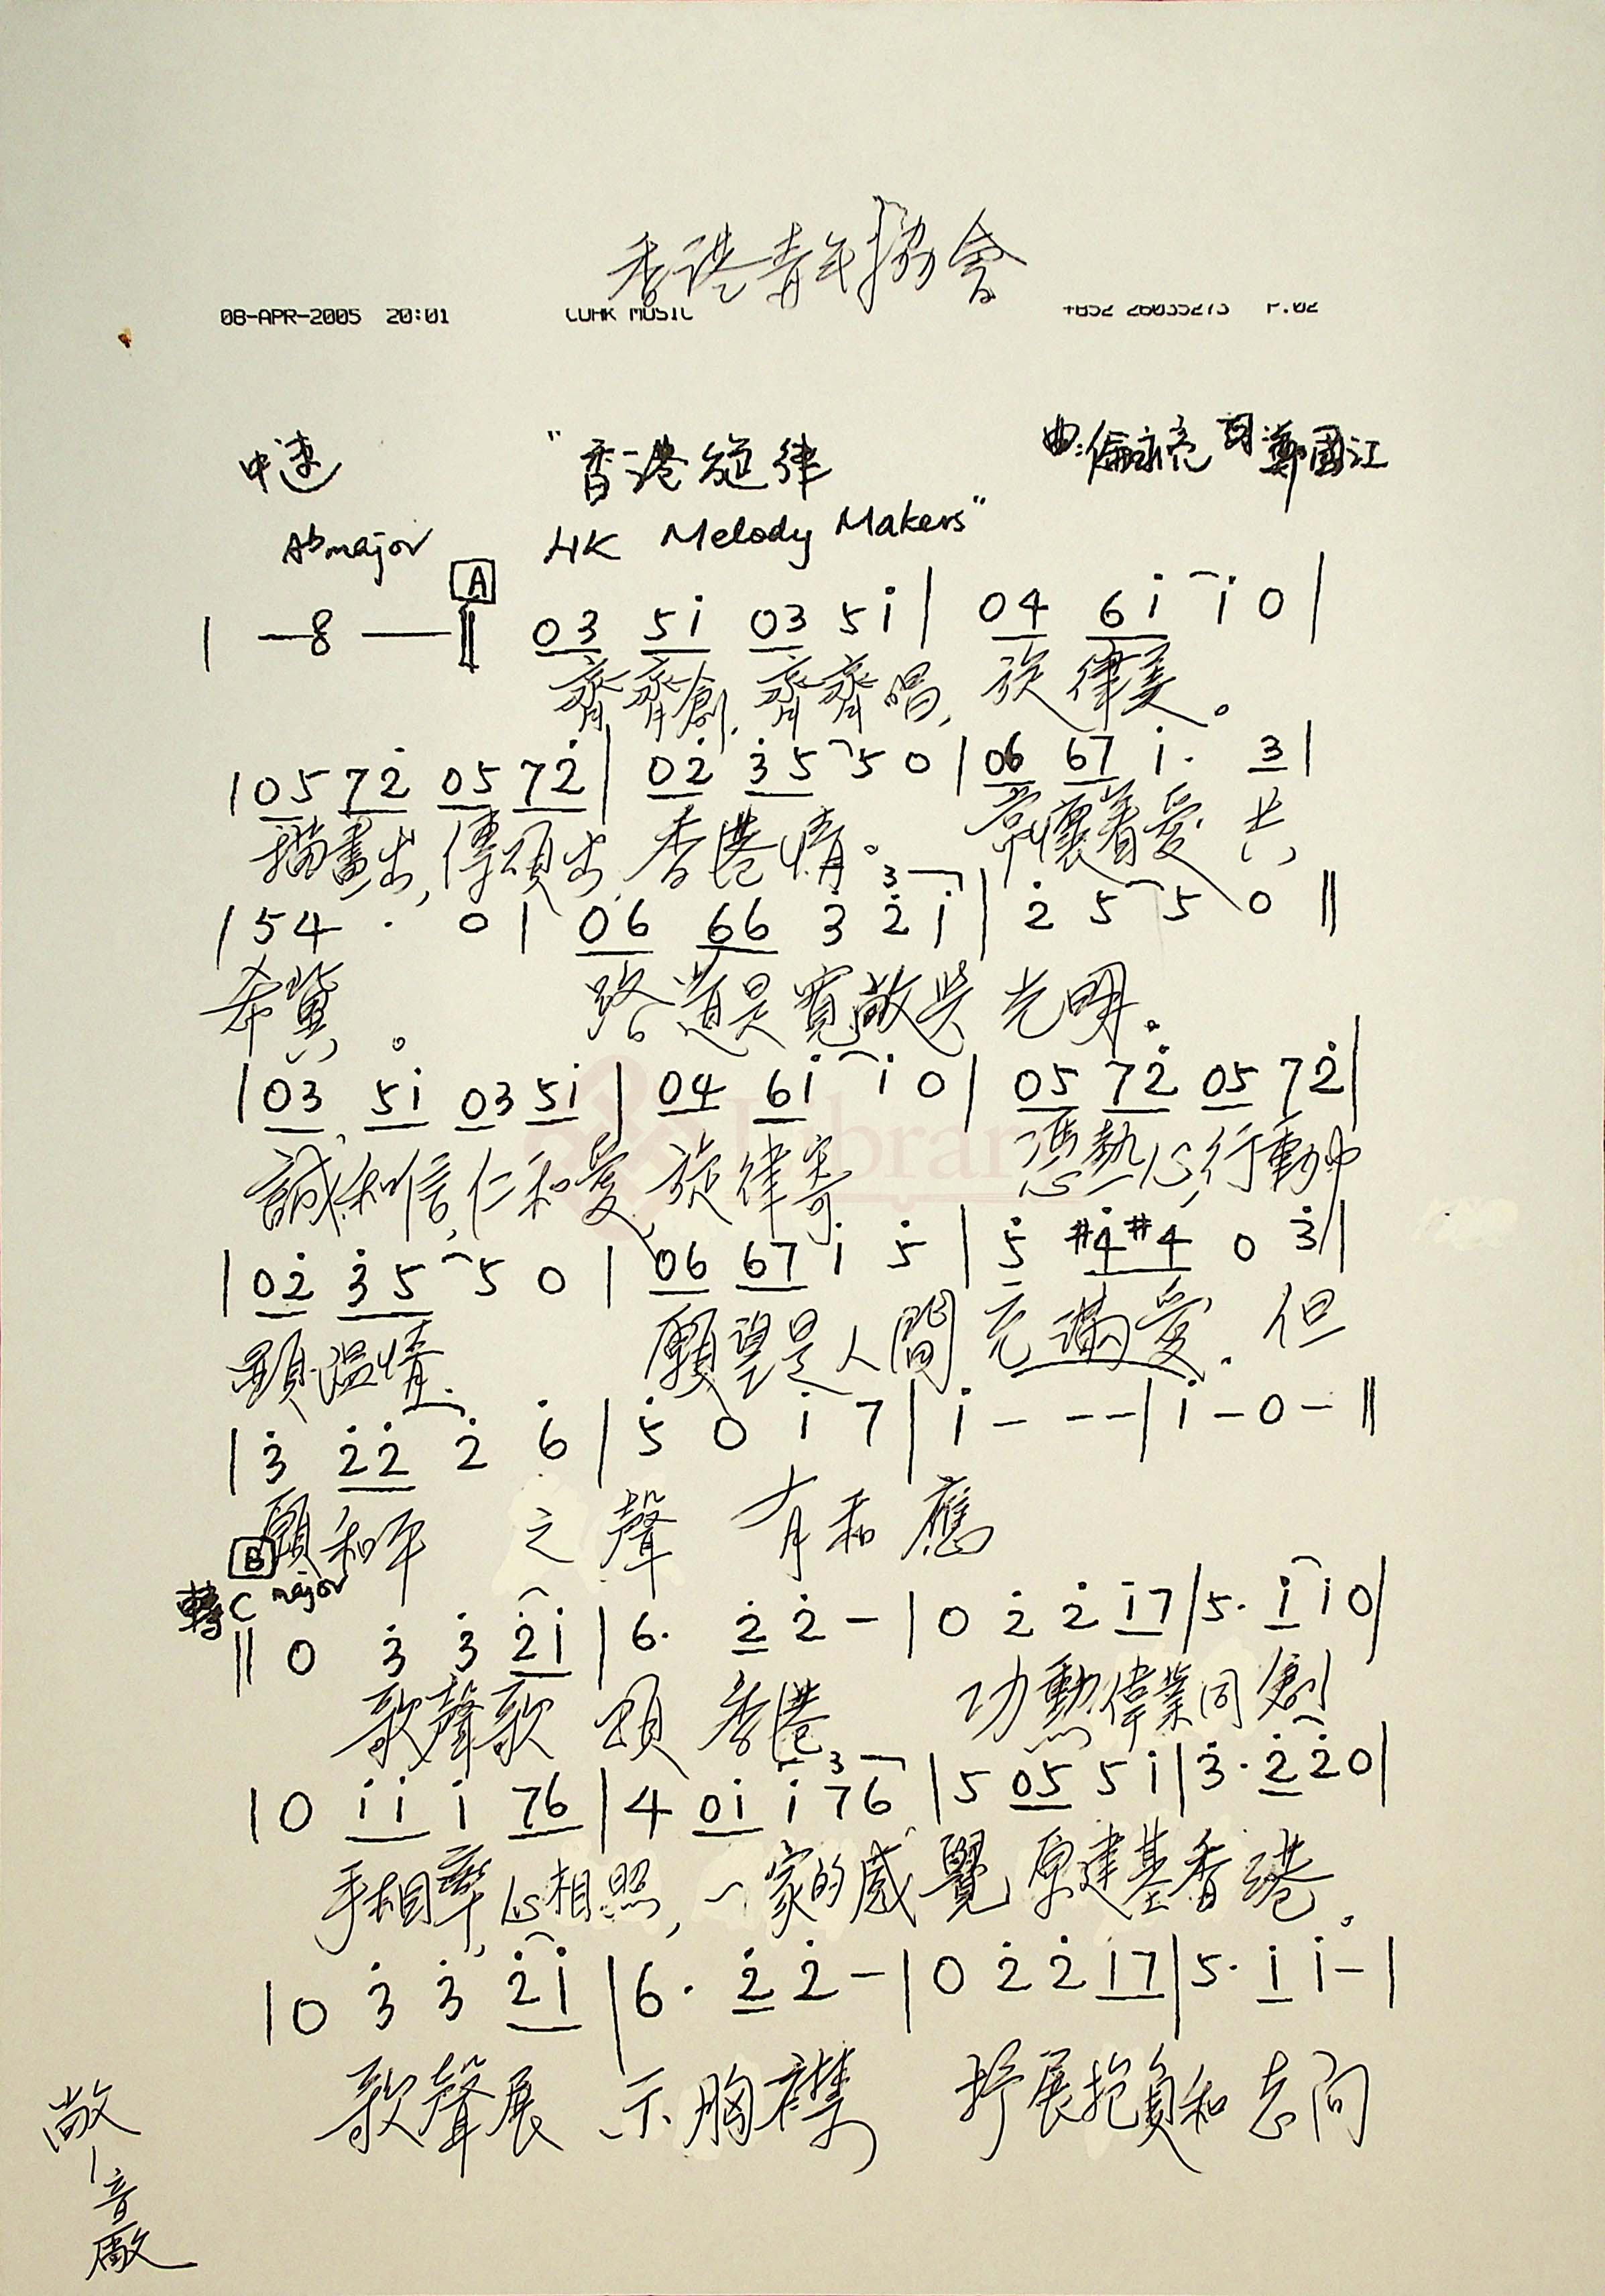 香港青年協會
08-APR-2005 20:01 CUHK MUSIC +852 26035273 P.02
中速 "香港旋律 曲:倫永亮 詞 鄭國江
Ab major HK Melody Makers"
A
| —8— || 03 5i̇ 03 5i̇ | 04 6i̇ i̇ 0 |
齊齊創,齊齊唱,旋律美。
| 05 72̇ 05 72̇ | 02̇ 3̇5 5 0 | 06 67 i̇· 3 |
描畫出,傳頌出,香港情。 常懷着愛 共
3
| 54 · 0 | 06 66 3̇ 2̇ i̇ | 2̇ 5 5 0 ||
希冀。 路道是寬敞是光明。
| 03 5i̇ 03 5i̇ | 04 6i̇ i̇ 0 | 05 72̇ 05 72̇ |
誠和信,仁和愛,旋律寄 憑熱心,行動中
| 02̇ 3̇5 5 0 | 06 67 i̇ 5̇ | 5̇ #4̇ #4 0 3̇ |
顯溫情. 願望是人間充滿愛. 但
| 3̇ 2̇2̇ 2̇ 6̇ | 5̇ 0 i̇ 7 | i̇ - - - | i̇ - 0 - ||
願和平 之聲 有和應
B
轉C major
|| 0 3̇ 3̇ 2̇i̇ | 6· 2̇ 2̇ - | 0 2̇ 2̇ i̇7 | 5· i̇ i̇ 0 |
歌聲歌頌香港, 功勳偉業同創
3
| 0 i̇i̇ i̇ 76 | 4 0i̇ i̇ 76 | 5 05 5 i̇ | 3̇· 2̇ 2̇ 0 |
手相牽,心相照,一家的感覺原建基香港。
| 0 3̇ 3̇ 2̇i̇ | 6· 2̇ 2̇ - | 0 2̇ 2̇ i̇7 | 5· i̇ i̇ - |
歌聲展示胸襟 抒展抱負和志向
敞
音
Library